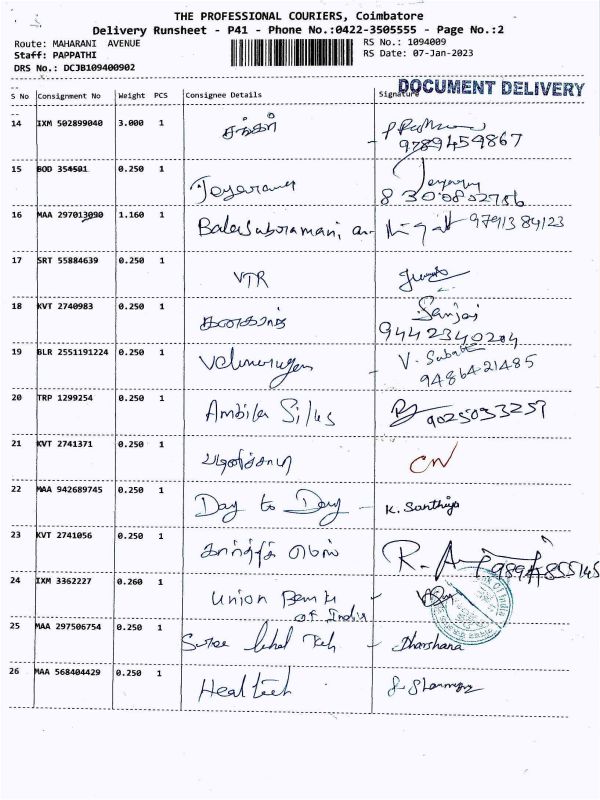 THE PROFESSIONAL COURIERS, Coimbatore
Delivery Runsheet - P41 - Phone No.:0422-3505555 - Page No.:2
Route: MAHARANI AVENUE RS No.: 1094009
Staff: PAPPATHI RS Date: 07-Jan-2023
DRS No.: DCJB109400902
DOCUMENT DELIVERY
S No Consignment No Weight PCS Consignee Details Signature
14 IXM 502899040 3.000 1 சங்கர்
9789459867
15 BOD 354501 0.250 1 Jeyaraman
8300802756
16 MAA 297013090 1.160 1 Balasubramani, 9791384123
17 SRT 55884639 0.250 1 VTR
18 KVT 2740983 0.250 1 Sanjai
9442340204
19 BLR 2551191224 0.250 1 Velmurugan V. Saba
9486421485
20 TRP 1299254 0.250 1 Ambika Silks 9025053257
21 KVT 2741371 0.250 1 பழனிச்சாமி CN
22 MAA 942689745 0.250 1 Day to Day - K. Santhiya
23 KVT 2741056 0.250 1 கார்த்திக் R.
24 IXM 3362227 0.260 1 Union Bank
of India
25 MAA 297506754 0.250 1 - Dharshana
26 MAA 568404429 0.250 1 Heal tech